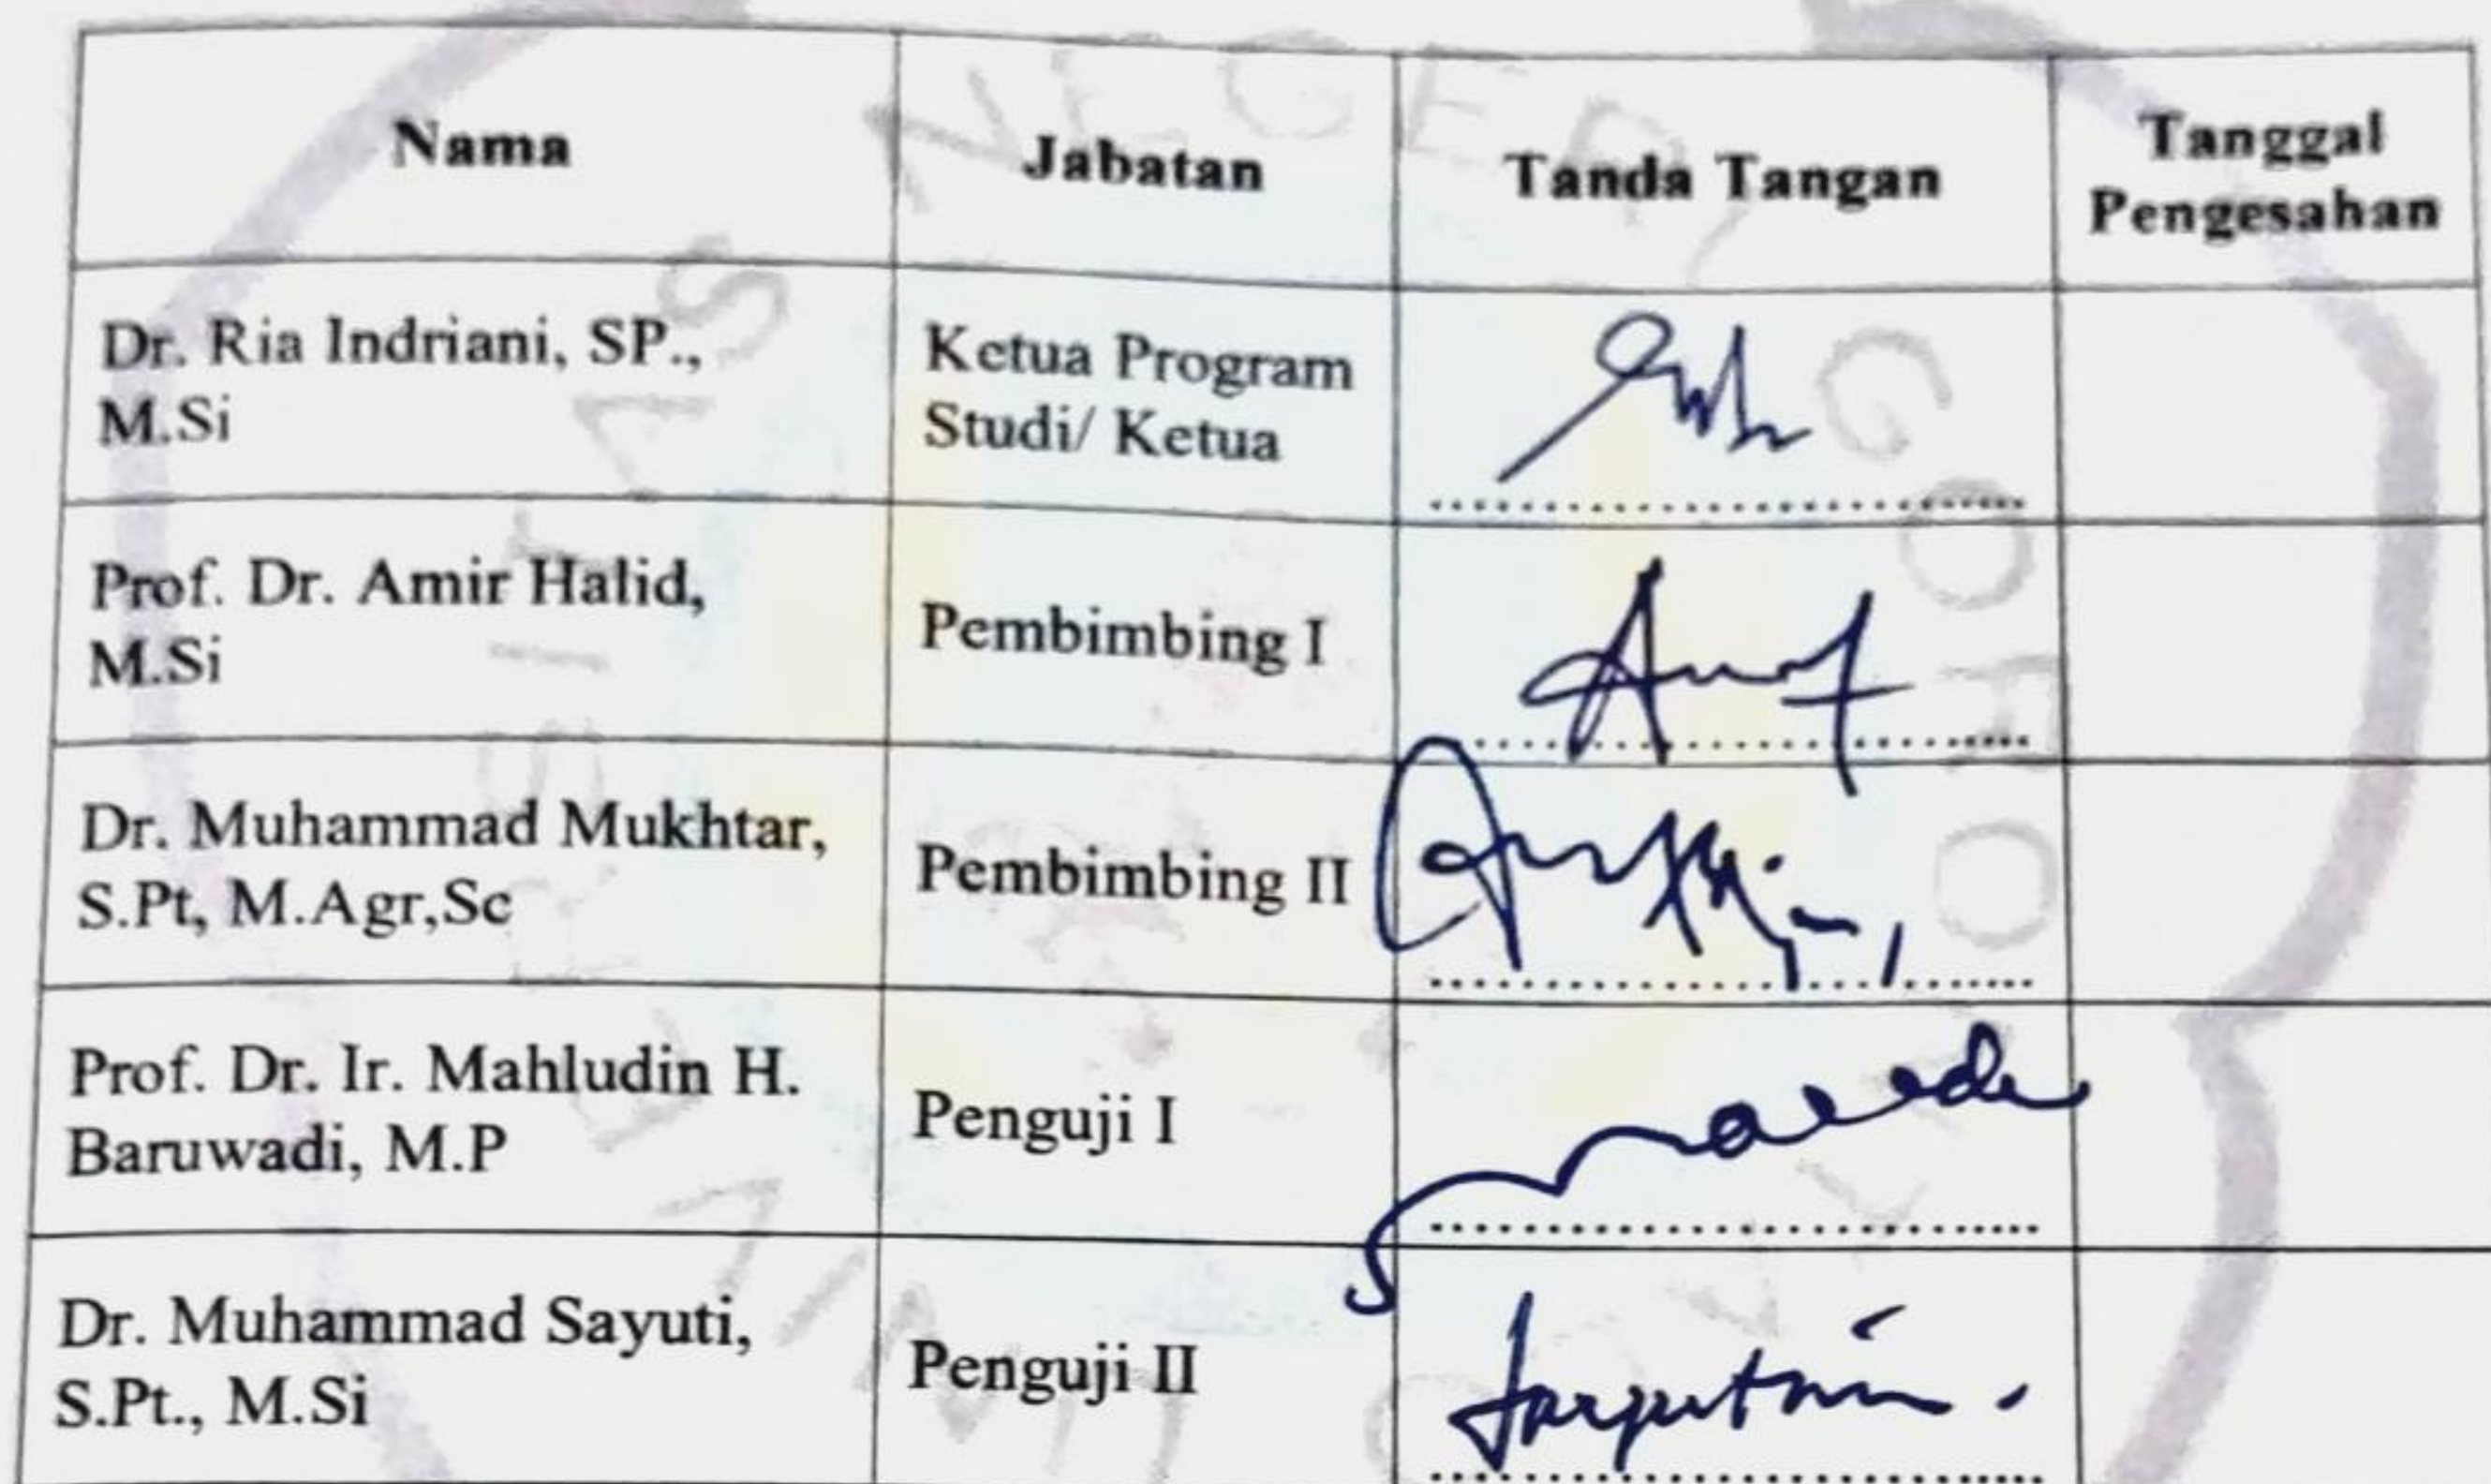 Nama
Jabatan
Tanda Tangan
Tanggal
Pengesahan
Dr. Ria Indriani, SP.,
M.Si
Ketua Program
Studi/ Ketua
Prof. Dr. Amir Halid,
M.Si
Pembimbing I
Dr. Muhammad Mukhtar,
S.Pt, M.Agr,Sc
Pembimbing II
Prof. Dr. Ir. Mahludin H.
Baruwadi, M.P
Penguji I
Dr. Muhammad Sayuti,
S.Pt., M.Si
Penguji II